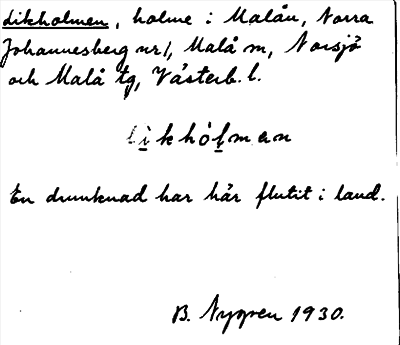 Likholmen, holme i Malån, Norra
Johannesberg nr 1, Malå sn, Norsjö
och Malå tg, Västerb. l.
likhólmen
En drunknad har här flutit i land.
B. Nygren 1930.